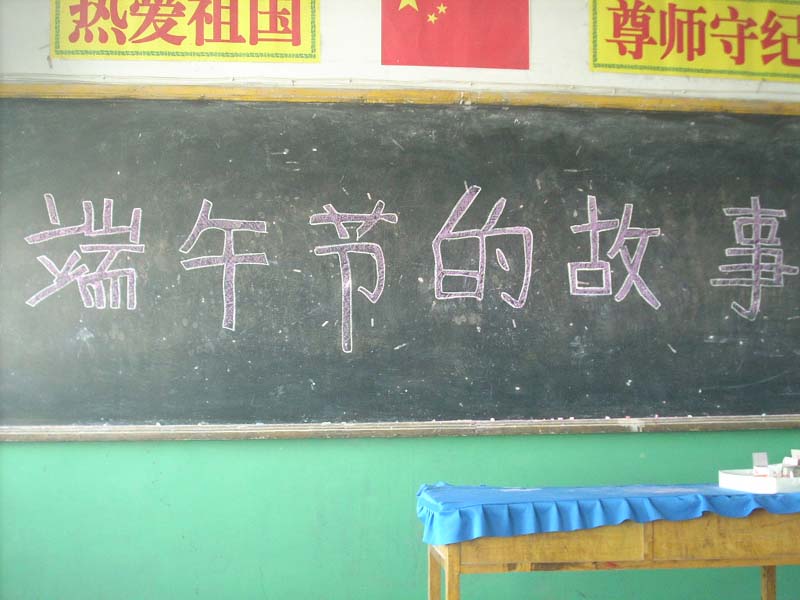 热爱祖国
尊师守纪
端午节的故事